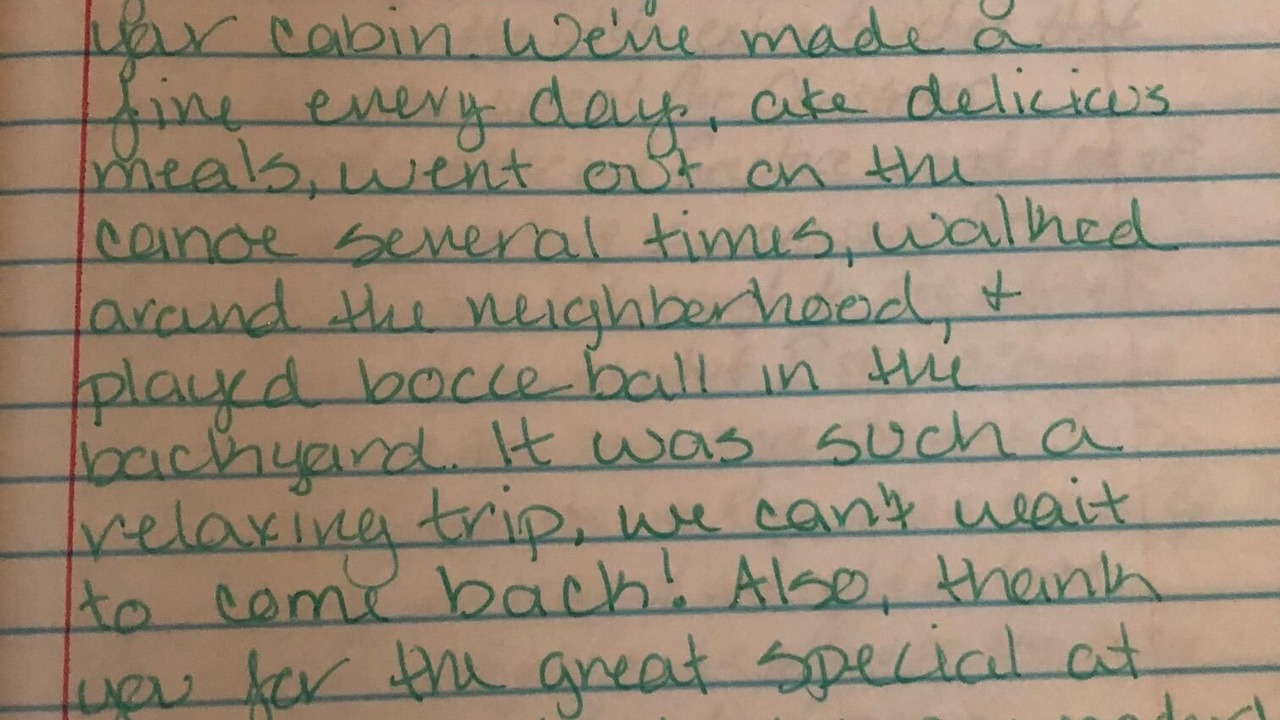 your cabin. We've made a
fire every day, ate delicious
meals, went out on the
canoe several times, walked
around the neighborhood, +
played bocce ball in the
backyard. It was such a
relaxing trip, we can't wait
to come back! Also, thank
you for the great special at